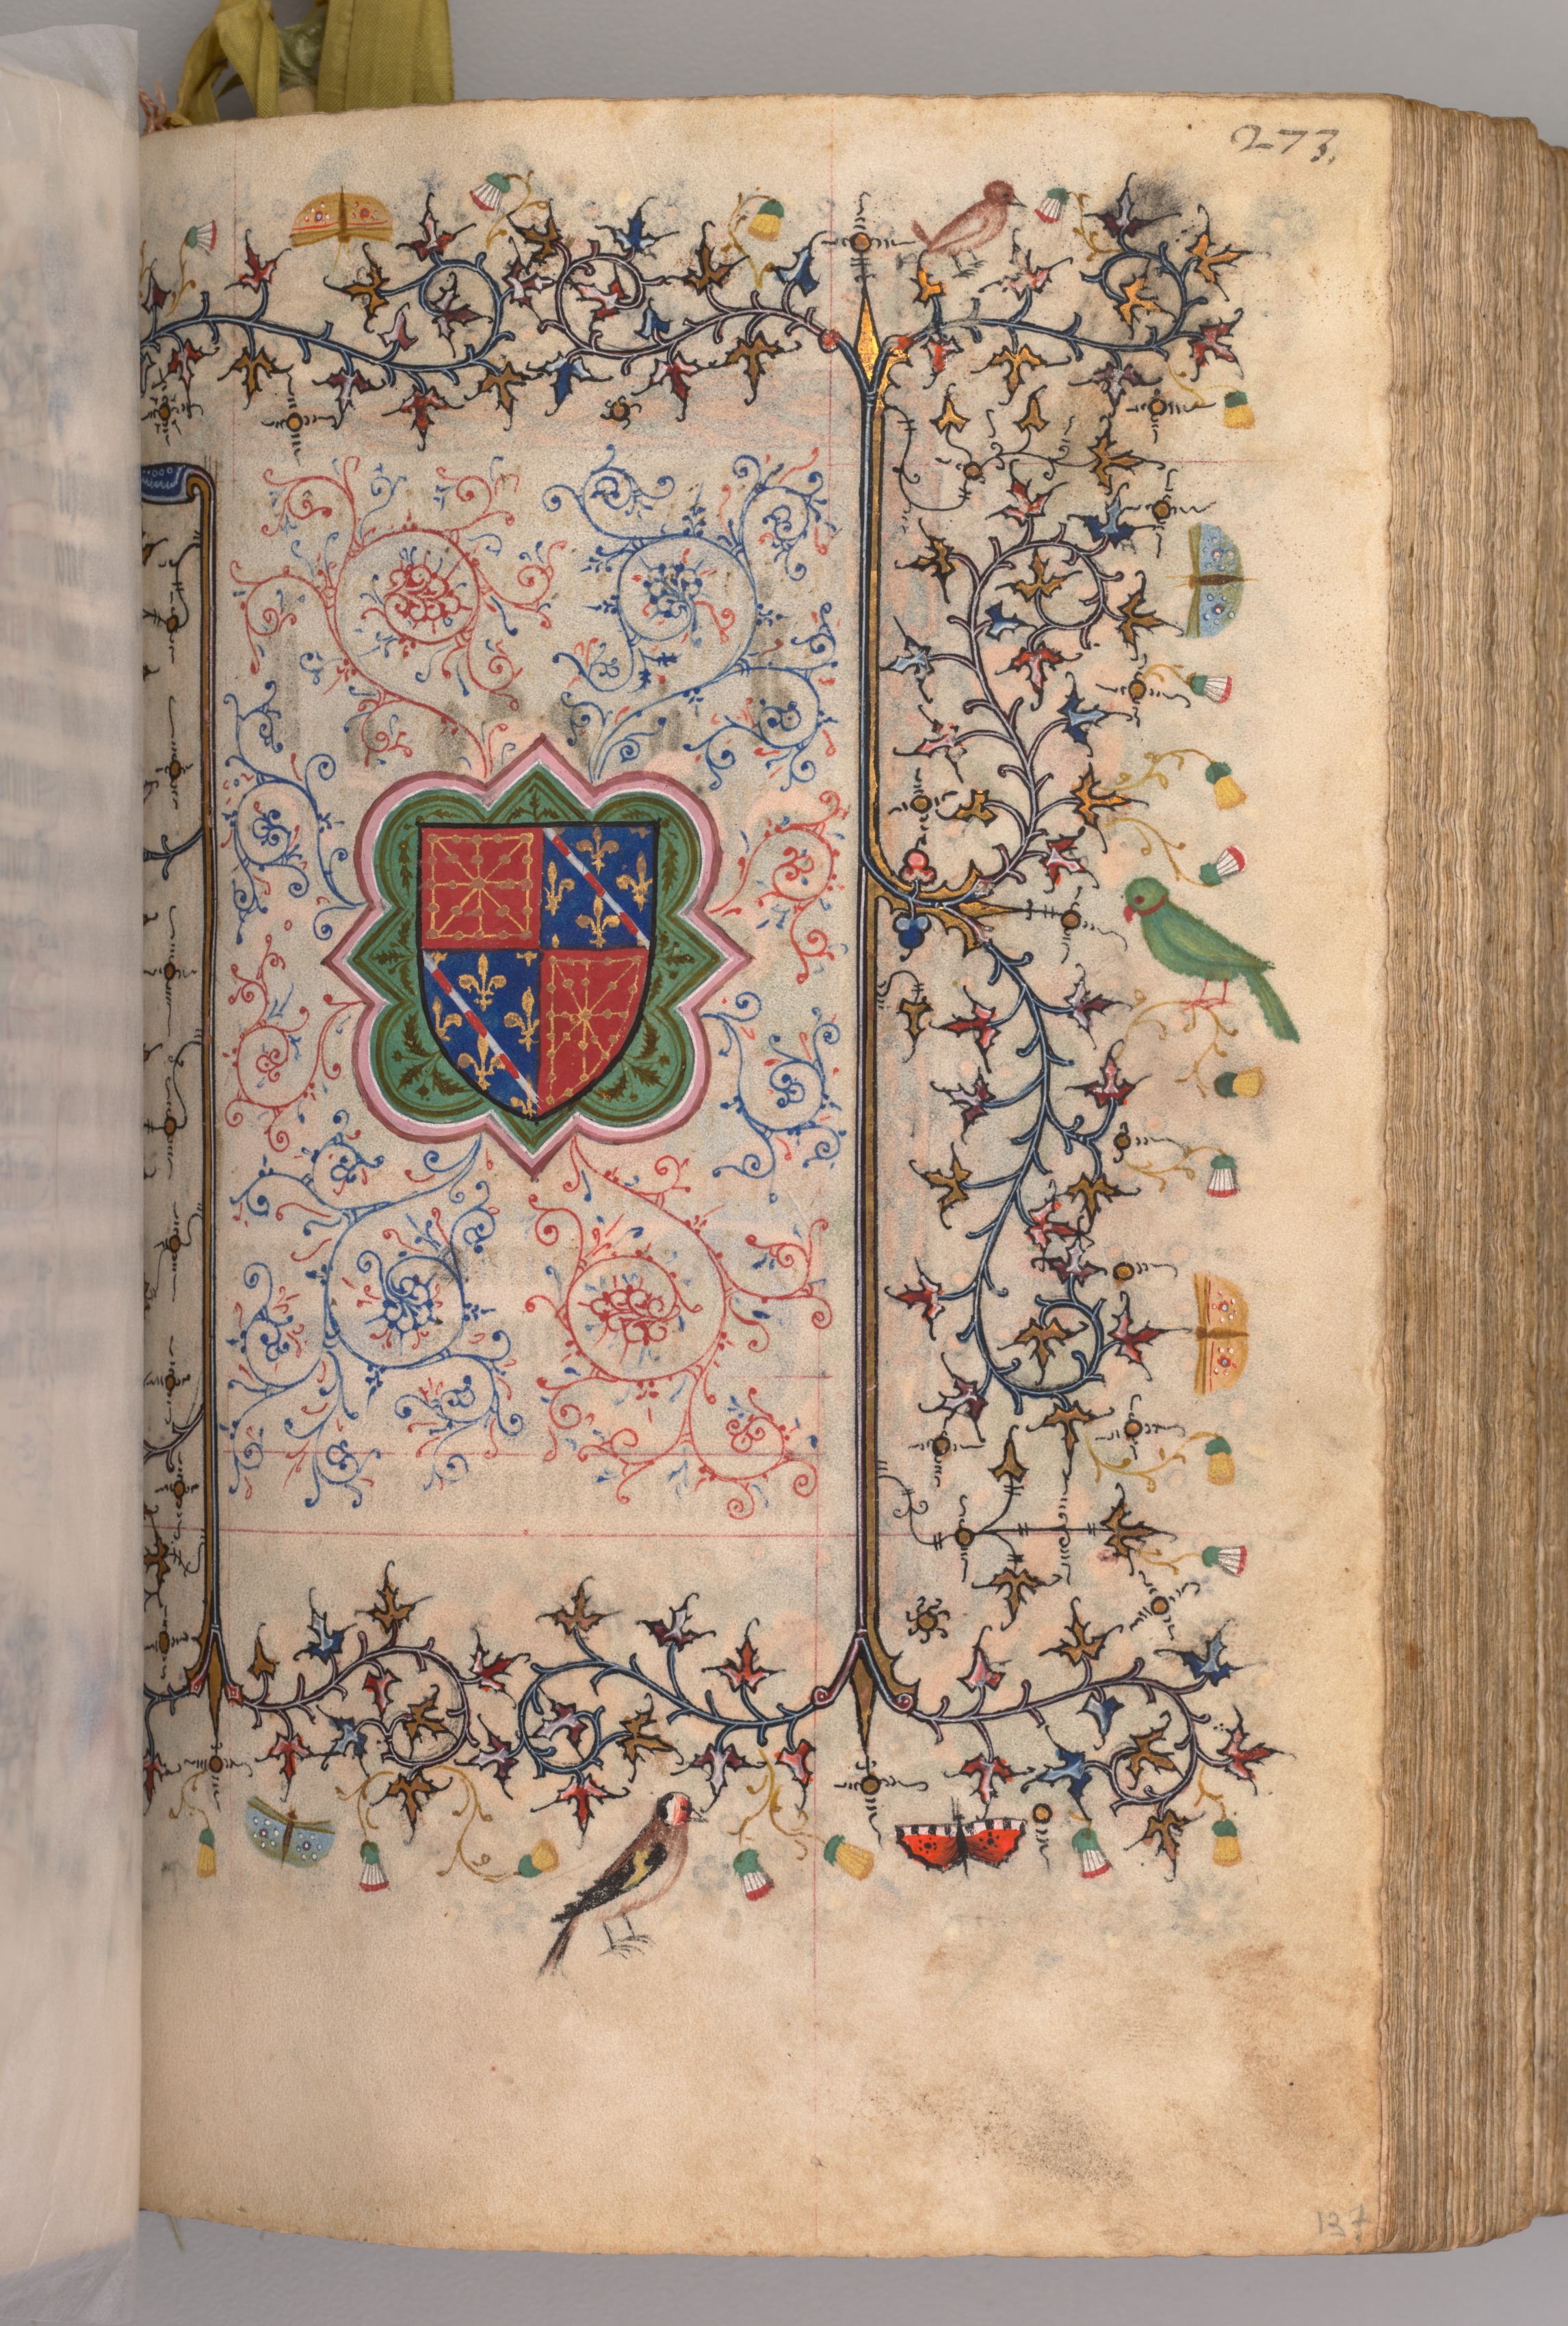 273.
137